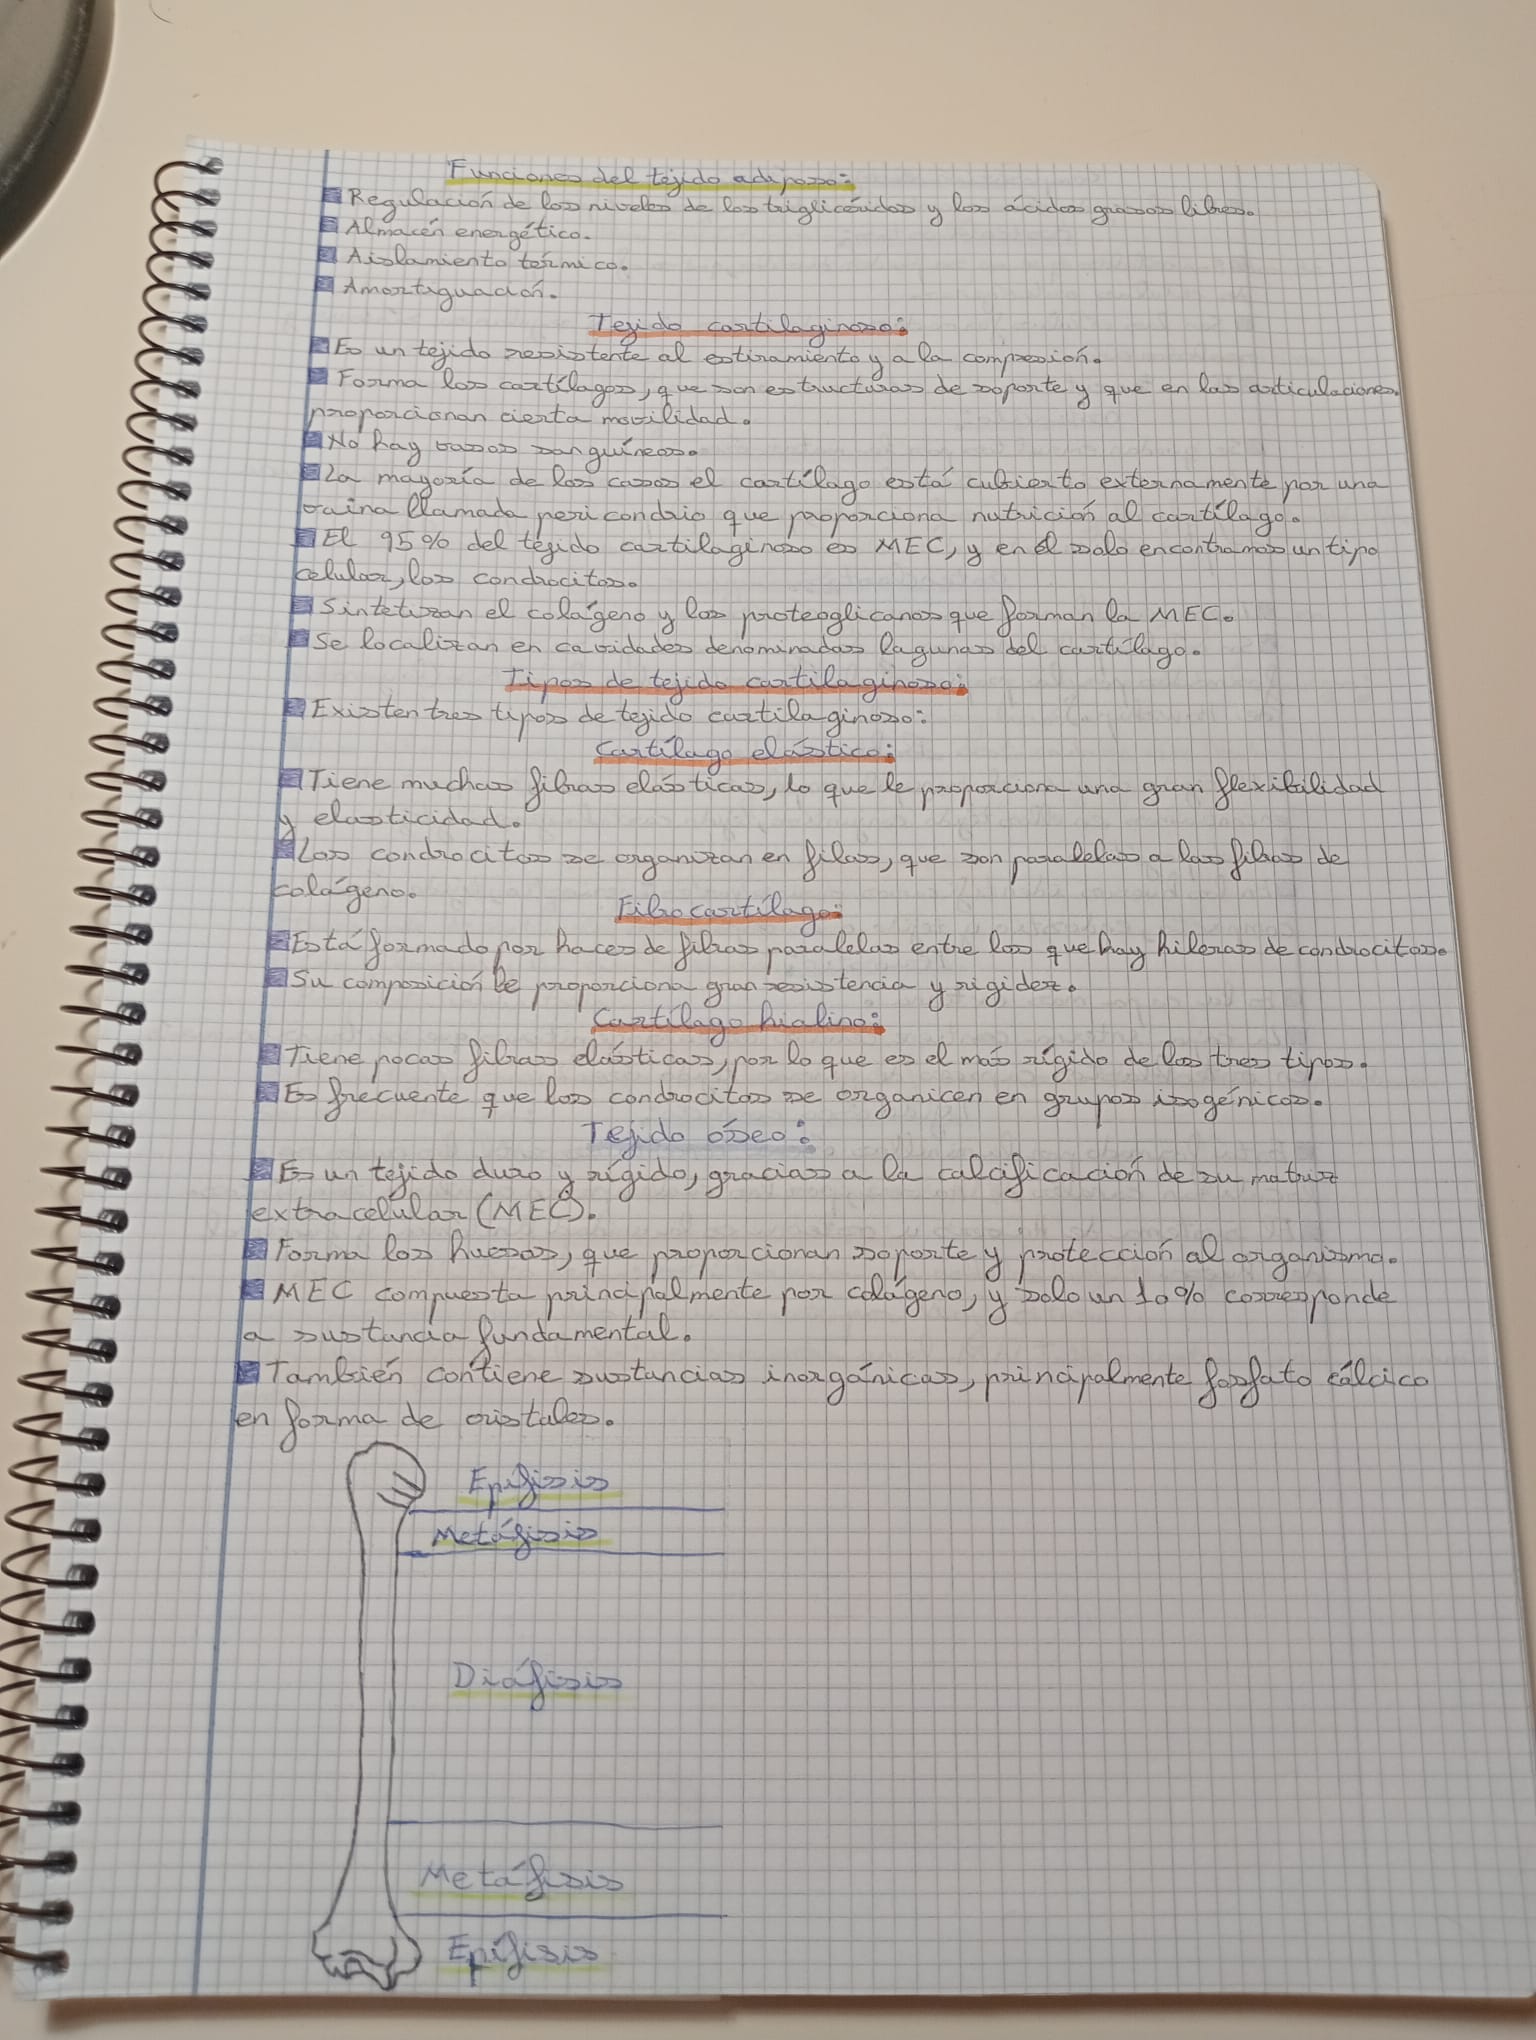 Funciones del tejido adiposo:
Regulación de los niveles de los triglicéridos y los ácidos grasos libres.
Almacén energético.
Aislamiento térmico.
Amortiguación.
Tejido cartilaginoso:
Es un tejido resistente al estiramiento y a la compresión.
Forma los cartílagos, que son estructuras de soporte y que en las articulaciones
proporcionan cierta movilidad.
No hay vasos sanguíneos.
La mayoría de los casos el cartílago está cubierto externamente por una
vaina llamada pericondrio que proporciona nutrición al cartílago.
El 95% del tejido cartilaginoso es MEC, y en él solo encontramos un tipo
celular, los condrocitos.
Sintetizan el colágeno y los proteoglicanos que forman la MEC.
Se localizan en cavidades denominadas lagunas del cartílago.
Tipos de tejido cartilaginoso:
Existen tres tipos de tejido cartilaginoso:
Cartílago elástico:
Tiene muchas fibras elásticas, lo que le proporciona una gran flexibilidad
y elasticidad.
Los condrocitos se organizan en filas, que son paralelas a las fibras de
colágeno.
Fibrocartílago:
Está formado por haces de fibras paralelas entre los que hay hileras de condrocitos.
Su composición le proporciona gran resistencia y rigidez.
Cartílago hialino:
Tiene pocas fibras elásticas, por lo que es el más rígido de los tres tipos.
Es frecuente que los condrocitos se organicen en grupos isogénicos.
Tejido óseo:
Es un tejido duro y rígido, gracias a la calcificación de su matriz
extracelular (MEC).
Forma los huesos, que proporcionan soporte y protección al organismo.
MEC compuesta principalmente por colágeno, y solo un 10% corresponde
a sustancia fundamental.
También contiene sustancias inorgánicas, principalmente fosfato cálcico
en forma de cristales.
Epífisis
Metáfisis
Diáfisis
Metáfisis
Epífisis